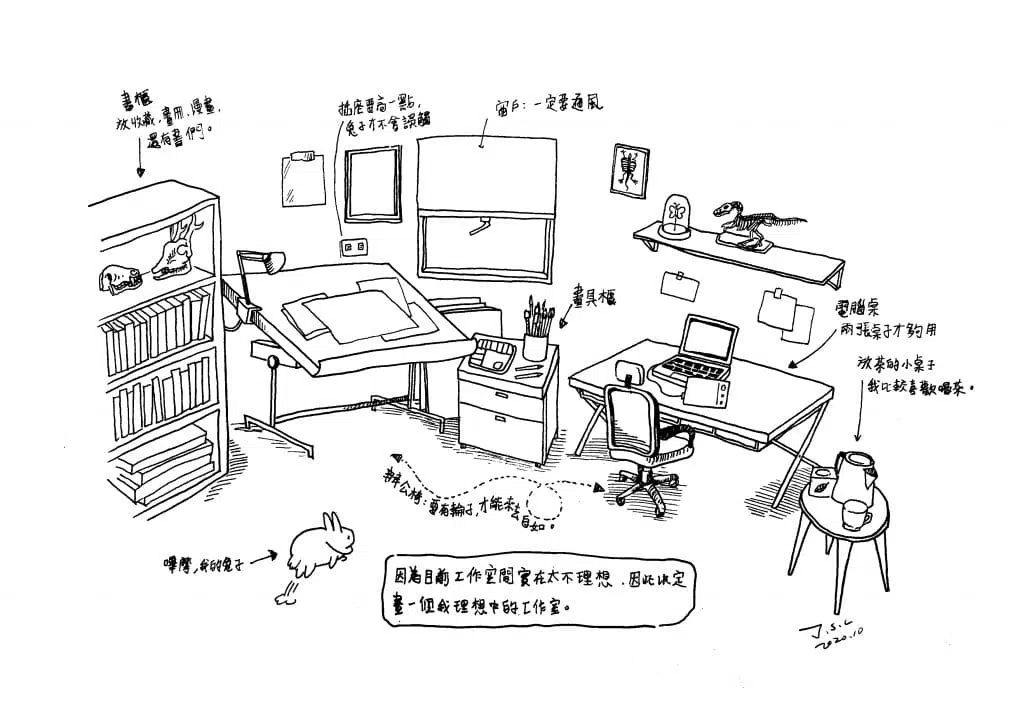 書櫃
放收藏、畫冊、漫畫,
還有書們。
插座要高一點,
兔子才不會誤觸
窗戶:一定要通風
畫具櫃
電腦桌
兩張桌子才夠用
放茶的小桌子
我比較喜歡喝茶。
辦公椅:要有輪子,才能來去自如。
嗶嗶,我的兔子
因為目前工作空間實在太不理想,因此決定
畫一個我理想中的工作室。
J.S.L
2020.10